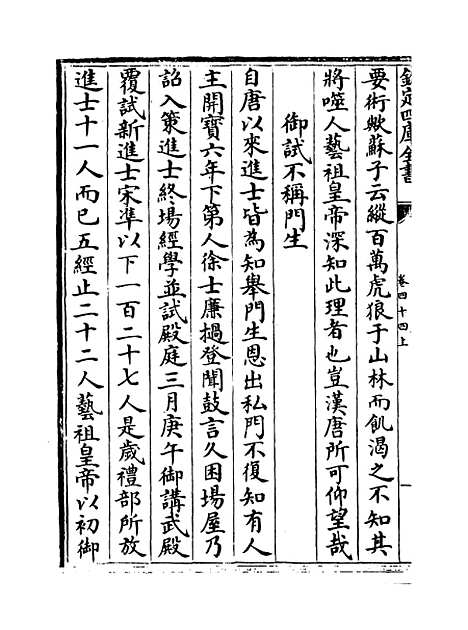 欽定四庫全書
卷四十四上
要術歟蘇子云縱百萬虎狼于山林而飢渴之不知其
將噬人藝祖皇帝深知此理者也豈漢唐所可仰望哉
御試不稱門生
自唐以來進士皆為知舉門生恩出私門不復知有人
主開寶六年下第人徐士廉撾登聞鼓言久困場屋乃
詔入策進士終場經學並試殿庭三月庚午御講武殿
覆試新進士宋準以下一百二十七人是歲禮部所放
進士十一人而已五經止二十二人藝祖皇帝以初御